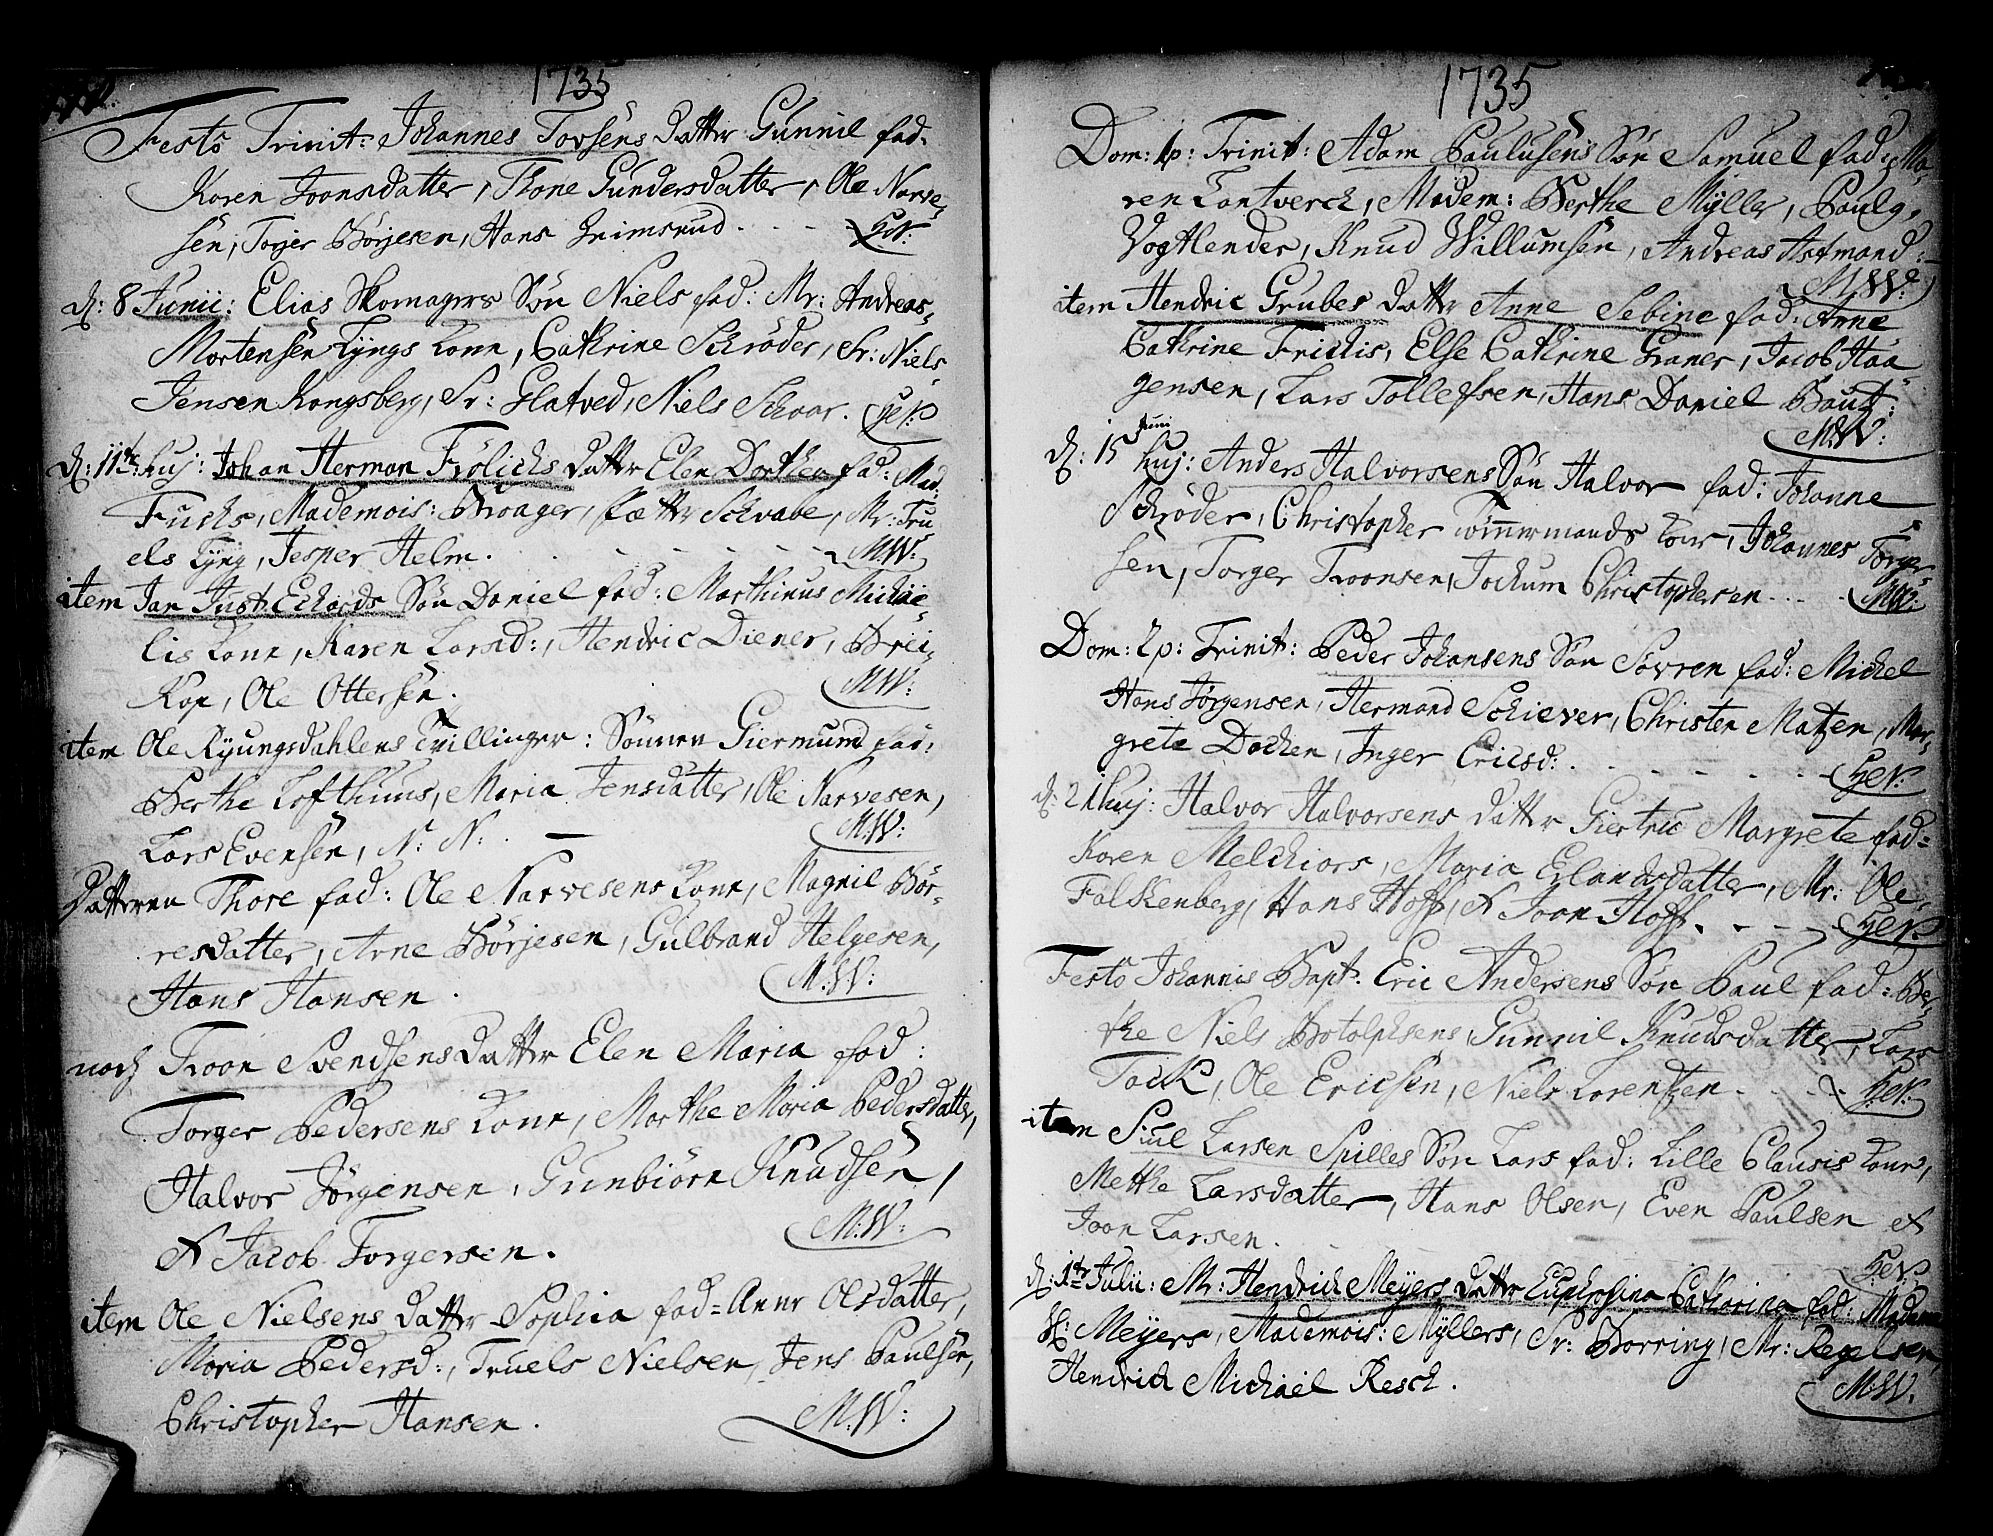 1735
Festo Trinit: Johannes Torsens Datter Gunnil fad:
Karen Joonsdatter, Thone Gundersdatter, Ole Narve-
sen, Torjer Börjesen, Hans
d: 8 Junii: Elias Skomagers Sön Niels fad: Mr: Andreas
Mortensen Lyngs Kone, Cathrine Schröder, Sr: Niels
Jensen Kongsberg, Sr: Glatved, Niels Schaar.
d: 11te huj: Johan Herman Frölichs Datter Elen Dorthea fad: Mad:
Fuchs, Mademois: Broager, Schvabe, Mr: Tru-
els Lyng, Jesper Helm. M.W:
item Jan Just Echards Sön Daniel fad: Marthinus Michae-
lis Kone, Karen Larsd:, Hendric Diener, Brei-
Kop, Ole Ottersen. M.W:
item Ole Ryungsdahlens Tvillinger: Sönnen Giermund fad:
Berthe Lofthuus, Maria Jensdatter, Ole Narvesen,
Lars Evensen, N: N: M.W:
Datteren Thore fad: Ole Narvesens Kone, Magnil Bör-
resdatter, Arne Börjesen, Gulbrand Helgesen,
Hans Hansen. M.W:
noch Troon Svendsens Datter Elen Maria fad:
Torger Pedersens Kone, Marthe Maria Pedersdatter,
Halvor Jörgensen, Gunbiörn Knudsen,
et Jacob Torgersen. M.W:
item Ole Nielsens Datter Sophia fad: Anne Olsdatter,
Maria Pedersd:, Truels Nielsen, Jens Paulsen,
Christopher Hansen. M.W:
1735
Dom: 1 p: Trinit: Adam Paulusens Sön Samuel fad: Ma-
ren Lantverck, Madem: Berthe Mÿller, Paul
Vogtlender, Knud Willumsen, Andreas Astmand:
M.W:
item Hendric Grubes Datter Anne Sebine fad: Anne
Cathrine Frichis, Else Cathrine Graner, Jacob Haa
gensen, Lars Tollefsen, Hans Daniel Baut:
M.W:
Juni
d: 15 huj: Anders Halvorsens Sön Halvor fad: Johanne
Schröder, Christopher Tömmermands Kone, Johannes Torger-
sen, Torger Troonsen, Jochum Christophersen. M.W:
Dom: 2 p: Trinit: Peder Johansens Sön Sövren fad: Michel
Hans Jörgensen, Hermand Schiever, Christen Matzen, Mar-
grete Dochen, Inger Ericsd:
d: 21 huj: Halvor Halvorsens Datter Giertric Margrete fad:
Karen Melchiors, Maria Erlandsdatter, Mr: Ole
Falkenberg, Hans Hoff, et Joon Hoff.
Festo Johannis Bapt. Eric Andersens Sön Paul fad: Ber-
the Niels Botolphsens, Gunnil Knudsdatter, Lars
Tock, Ole Ericsen, Niels Lorentzen.
item Siul Larsen Spilles Sön Lars fad: Lille Clausis Kone,
Methe Larsdatter, Hans Olsen, Even Paulsen et
Joon Larsen.
d: 1te Julii: Mr: Hendrich Meyers Datter Euphrosina Catharina fad: Madame
Meyers, Mademois: Mÿllers, Sr: Borring, Mr: Regelsen,
Hendrich Michael Resch. M.W: